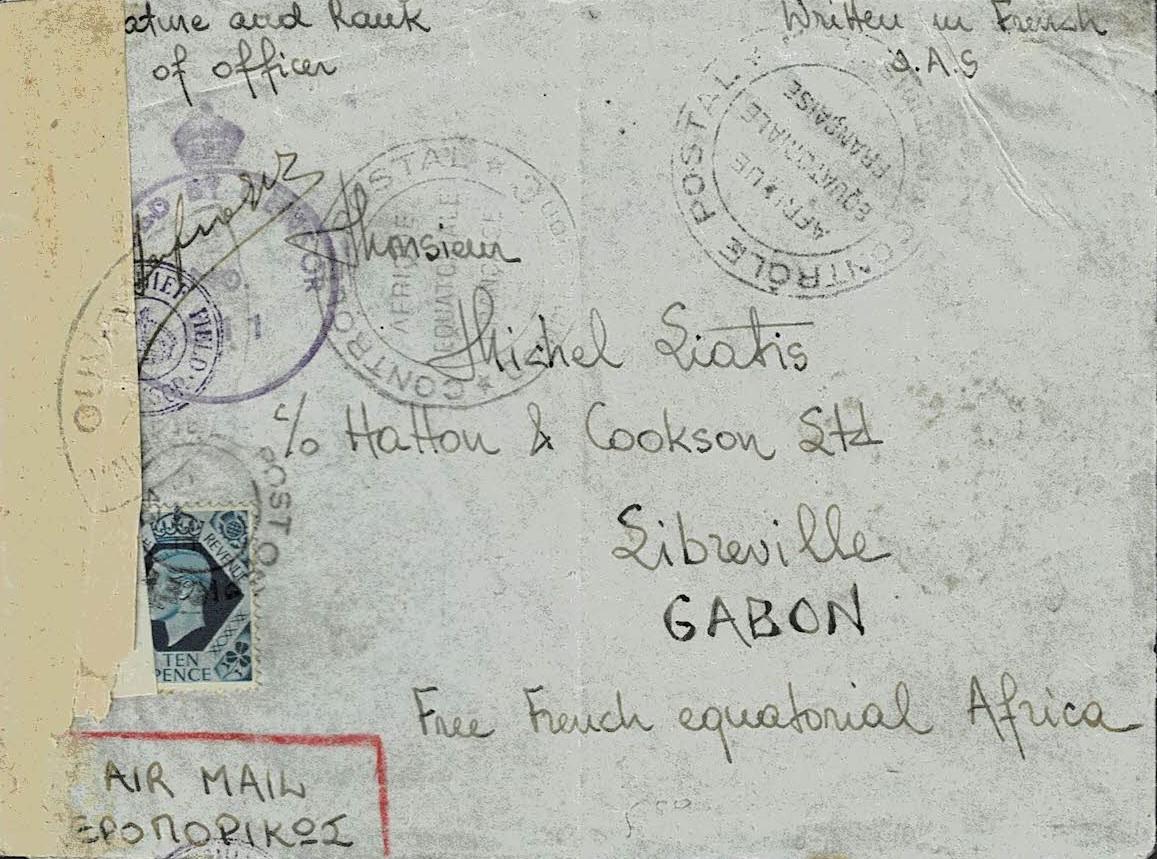 ature and Rank
of officer
Written in French
O.A.S
CONTRÔLE POSTAL
AFRIQUE
EQUATORIALE
FRANÇAISE
CONTRO POSTAL
AFRIQUE
EQUATORIALE
ED BY
Monsieur
HIEF FIELD
11
Michel Liatis
c/o Hatton & Cookson Ltd
Libreville
GABON
Free French equatorial Africa
POST O
REVENUE
TEN
PENCE
AIR MAIL
ΕΡΟΠΟΡΙΚΩΣ